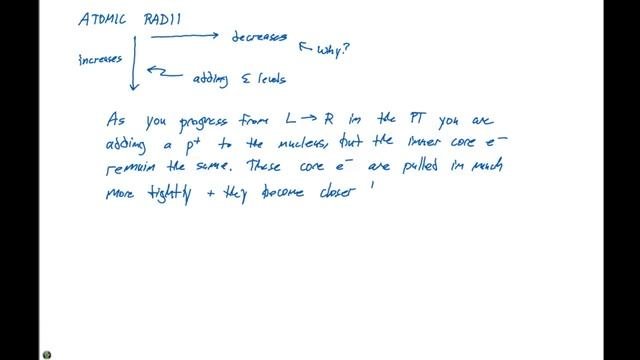 ATOMIC RADII
decreases
why?
increases
adding E levels
As you progress from L → R in the PT you are
adding a p+ to the nucleus, but the inner core e-
remain the same. These core e- are pulled in much
more tightly + they become closer